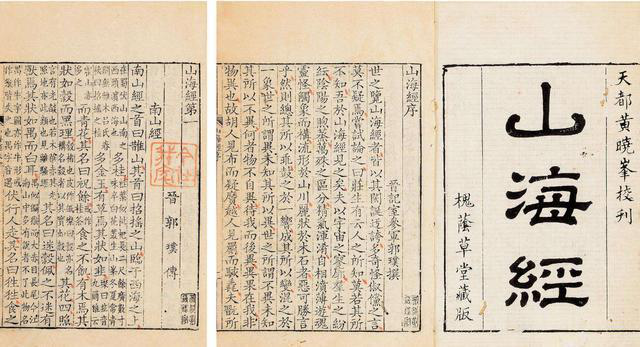 天都黃曉峯校刊
山海經
槐蔭草堂藏版
山海經序
晉記室參軍郭璞撰
世之覽山海經者皆以其閎誕迂誇多奇怪俶儻之言
莫不疑焉嘗試論之曰莊生有云人之所知莫若其所
不知吾於山海經見之矣夫以宇宙之寥廓羣生之紛
紜陰陽之煦蒸萬殊之區分精氣渾淆自相濆薄遊魂
靈怪觸象而構流形於山川麗狀於木石者惡可勝言
乎然則總其所以乖鼓之於一響成其所以變混之於
一象世之所謂異未知其所以異世之所謂不異未知
其所以不異何者物不自異待我而後異異果在我非
物異也故胡人見布而疑黂越人見罽而駭毳夫翫所
山海經第一
南山經
晉郭璞傳
南山經之首曰䧿山其首曰招搖之山臨于西海之上
在蜀伏山山南之西頭濱西海也
多桂
多金玉有草焉其狀如韭
而青花其名曰祝餘
食之不飢有木焉其
狀如榖而黑理
其花四照
其名曰迷榖佩之不迷有
獸焉其狀如禺而白耳
伏行人走其名曰狌狌食之